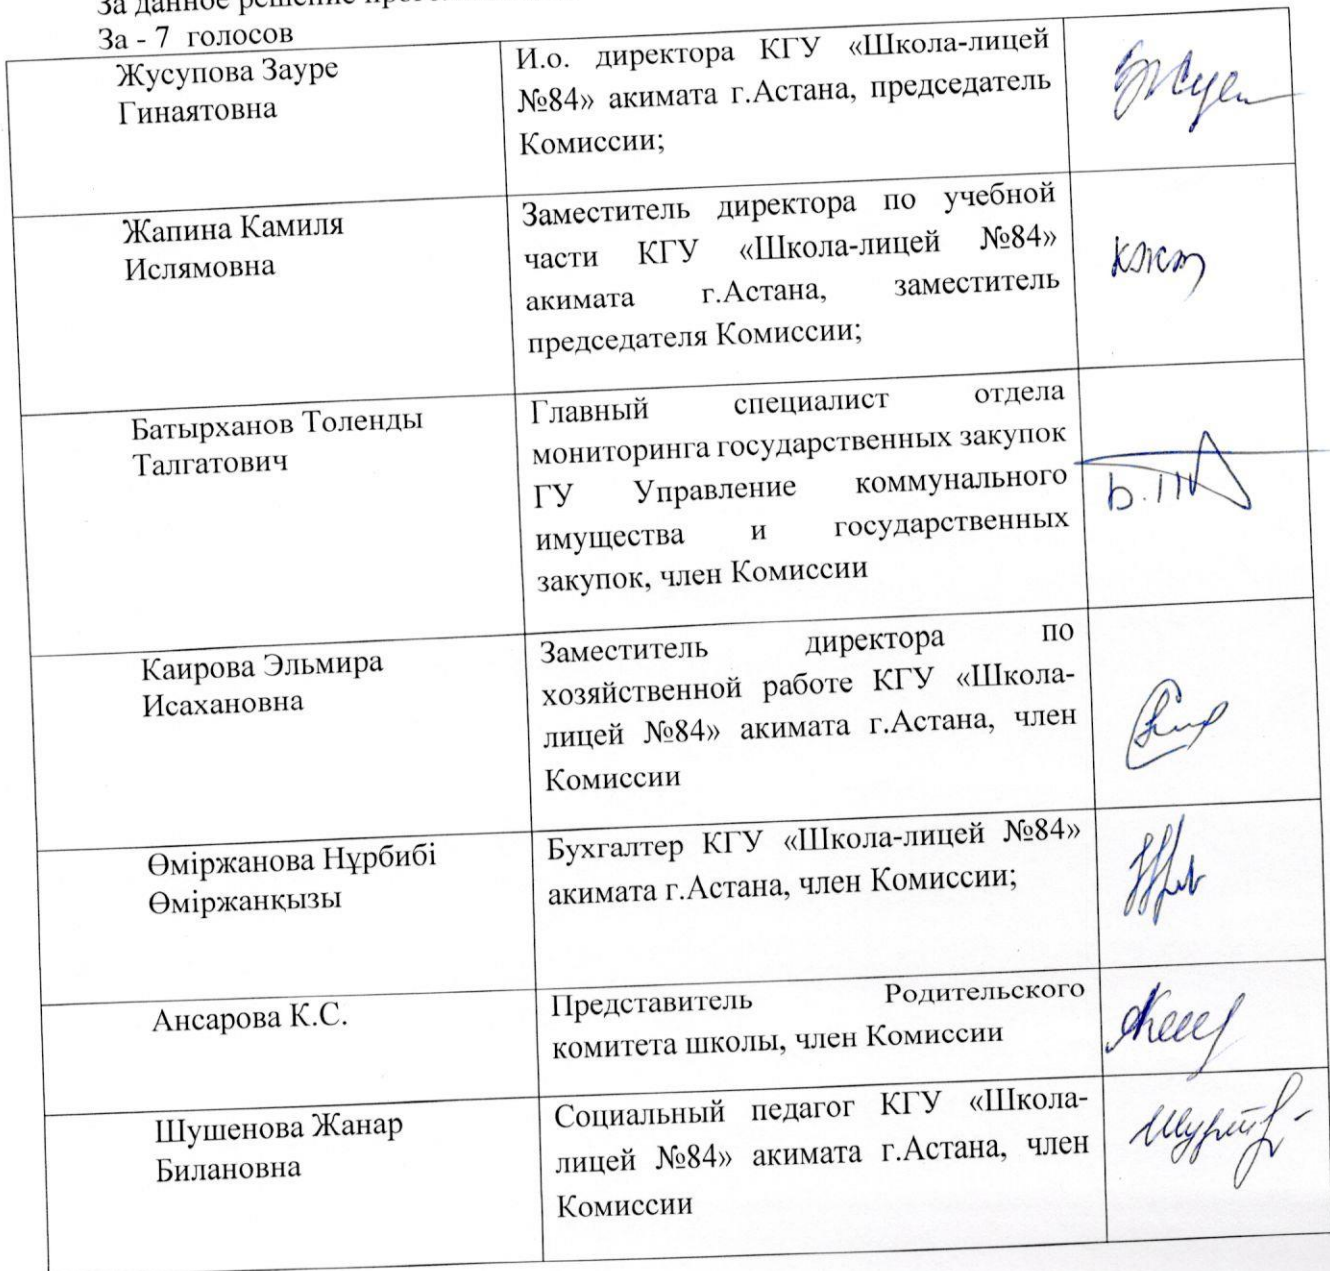 За данное решение
За - 7 голосов
Жусупова Зауре
Гинаятовна
И.о. директора КГУ «Школа-лицей
№84» акимата г.Астана, председатель
Комиссии;
Жапина Камиля
Ислямовна
Заместитель директора по учебной
части КГУ «Школа-лицей №84»
акимата г.Астана, заместитель
председателя Комиссии;
Батырханов Толенды
Талгатович
Главный специалист отдела
мониторинга государственных закупок
ГУ Управление коммунального
имущества и государственных
закупок, член Комиссии
Каирова Эльмира
Исахановна
Заместитель директора по
хозяйственной работе КГУ «Школа-
лицей №84» акимата г.Астана, член
Комиссии
Өміржанова Нұрбибі
Өміржанқызы
Бухгалтер КГУ «Школа-лицей №84»
акимата г.Астана, член Комиссии;
Ансарова К.С.
Представитель Родительского
комитета школы, член Комиссии
Шушенова Жанар
Билановна
Социальный педагог КГУ «Школа-
лицей №84» акимата г.Астана, член
Комиссии